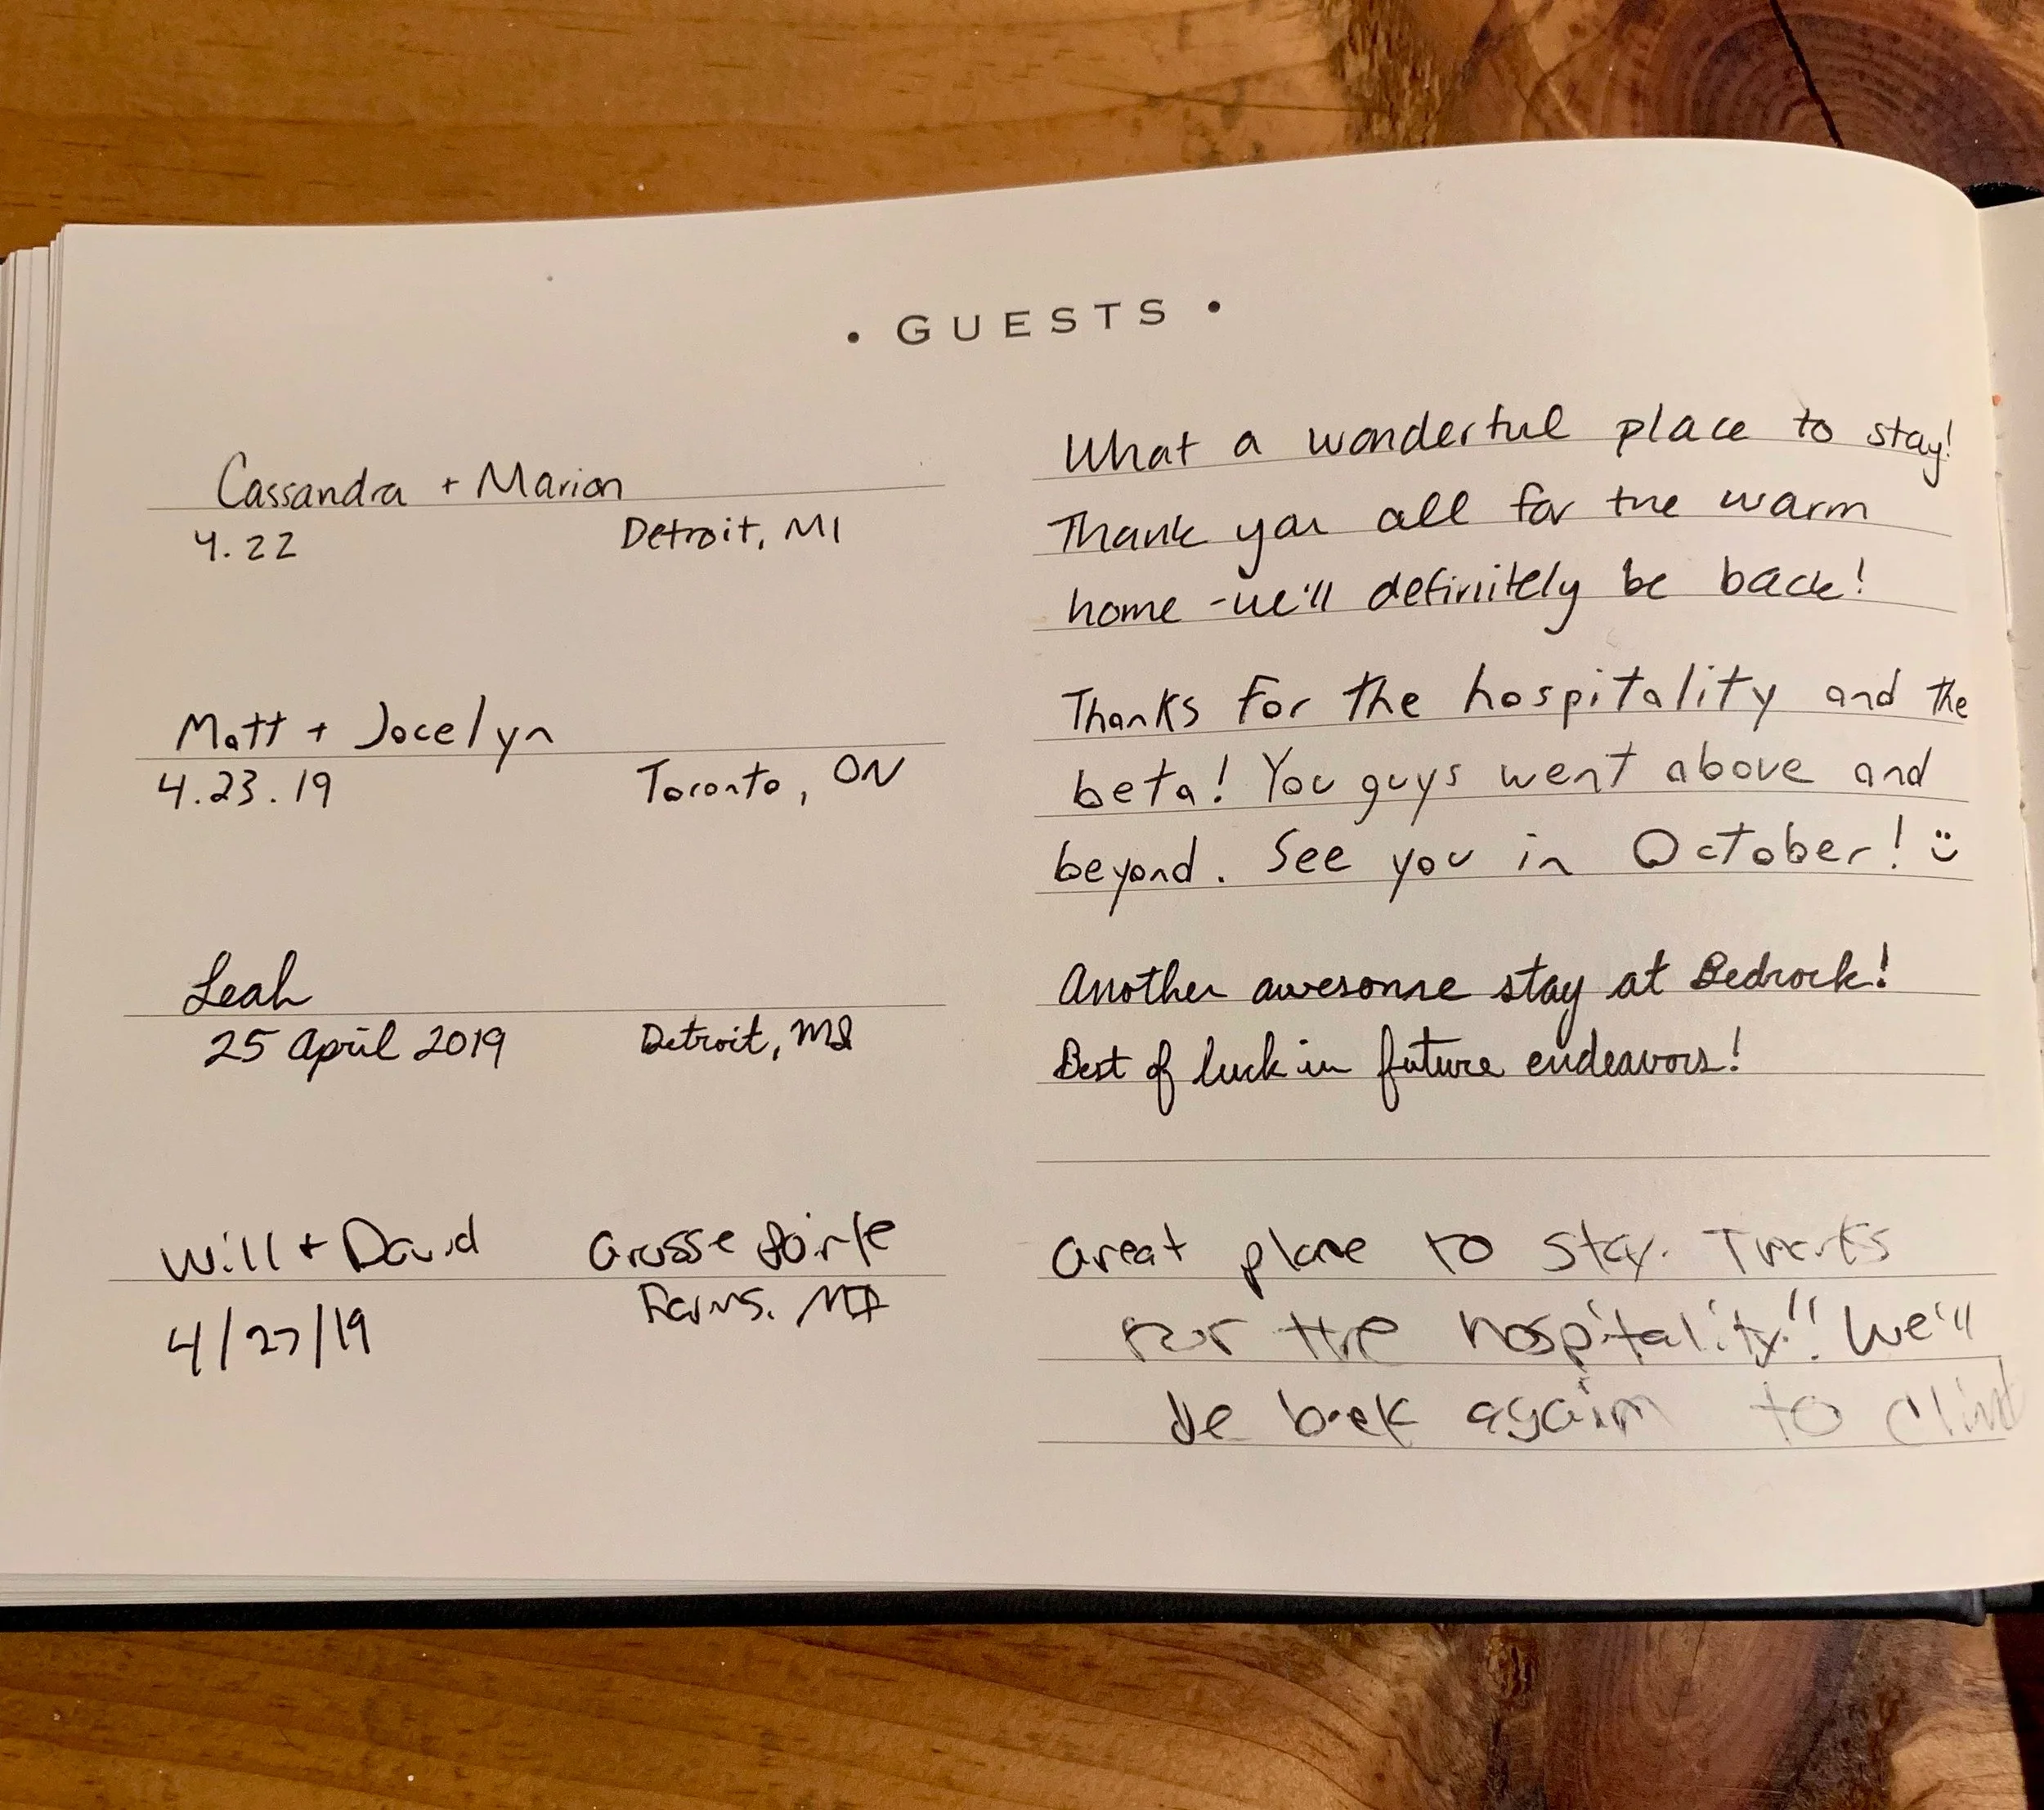 • GUESTS •
Cassandra + Marion
4.22 Detroit, MI
What a wonderful place to stay!
Thank you all for the warm
home - we'll definitely be back!
Matt + Jocelyn
4.23.19 Toronto, ON
Thanks for the hospitality and the
beta! You guys went above and
beyond. See you in October! :)
Leah
25 April 2019 Detroit, MI
Another awesome stay at Bedrock!
Best of luck in future endeavors!
Will + David Grosse Pointe
4/27/19 Farms, MI
Great place to stay. Thanks
for the hospitality!! We'll
be back again to climb